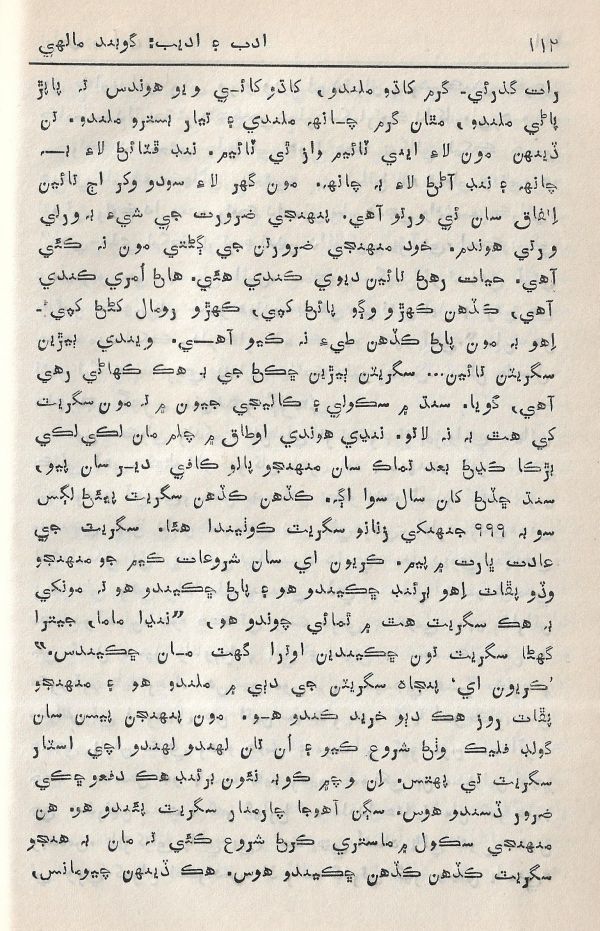 ادب ۽ اديب: گوبند مالهي ١١٢
رات گذرئي۔ گرم کاڌو ملندو، کاڌو کائي ويو هوندس تہ پاپڙ
پاڻي ملندو، مٿان گرم چانهہ ملندي ۽ تيار بسترو ملندو. ٽن
ڏينهن مون لاءِ ايتي ٽائيم واڙ ٿي ٽائيم. ننڊ ڦٽائڻ لاءِ بہ
چانهہ ۽ ننڊ آڻڻ لاءِ بہ چانهہ. مون گهر لاءِ سودو وکر اڄ تائين
اتفاق سان ئي ورتو آهي. پنهنجي ضرورت جي شيءِ بہ ورلي
ورتي هوندم. خود منهنجي ضرورتن جي ڳڻتي مون نہ ڪئي
آهي. حيات رهڻ تائين ديوي ڪندي هئي. هاڻ اُمري ڪندي
آهي، ڪڏهن ڪهڙو وڳو پائڻ کپي، ڪهڙو رومال کڻڻ کپي۔
اهو بہ مون پاڻ ڪڏهن طيءِ نہ ڪيو آهي. ويندي ٻيڙين
سگريٽن تائين... سگريٽن ٻيڙين ڇڪڻ جي بہ هڪ ڪهاڻي رهي
آهي، گويا. سنڌ ۾ سڪولي ۽ ڪاليجي جيون ۾ تہ مون سگريٽ
کي هٿ بہ نہ لاتو. ننڍي هوندي اوطاق ۾ چلم مان لڪي لڪي
ٻڙڪا ڪڍڻ بعد تماڪ سان منهنجو پالو ڪافي دير سان پيو،
سنڌ ڇڏڻ کان سال سوا اڳ. ڪڏهن ڪڏهن سگريٽ پيئڻ لڳس
سو بہ ٩٩٩ جنهنکي زنانو سگريٽ ڪوٺيندا هئا. سگريٽ جي
عادت ڀارت ۾ پيم. ڪريون اي سان شروعات ڪيم جو منهنجو
وڏو ڀڦاٽ اهو برئنڊ ڇڪيندو هو ۽ پاڻ ڇڪيندو هو تہ مونکي
بہ هڪ سگريٽ هٿ ۾ ٿمائي چوندو هو، ”ننڍا ماما، جيترا
گهڻا سگريٽ تون ڇڪيندين اوترا گهٽ مان ڇڪيندس.“
’ڪريون اي‘ پنجاهہ سگريٽن جي دٻي ۾ ملندو هو ۽ منهنجو
ڀڦاٽ روز هڪ دٻو خريد ڪندو هو. مون پنهنجن پيسن سان
گولڊ فليڪ وٺڻ شروع ڪيو ۽ اُن تان لهندو لهندو اچي اسٽار
سگريٽ تي پهتس. ان وچ ۾ ڪوبہ نئون برئنڊ هڪ دفعو ڇڪي
ضرور ڏسندو هوس. سڳن آهوجا چارمنار سگريٽ پيئندو هو. هن
منهنجي سڪول ۾ ماستري ڪرڻ شروع ڪئي تہ مان بہ هنجو
سگريٽ ڪڏهن ڪڏهن ڇڪيندو هوس. هڪ ڏينهن چيومانس،